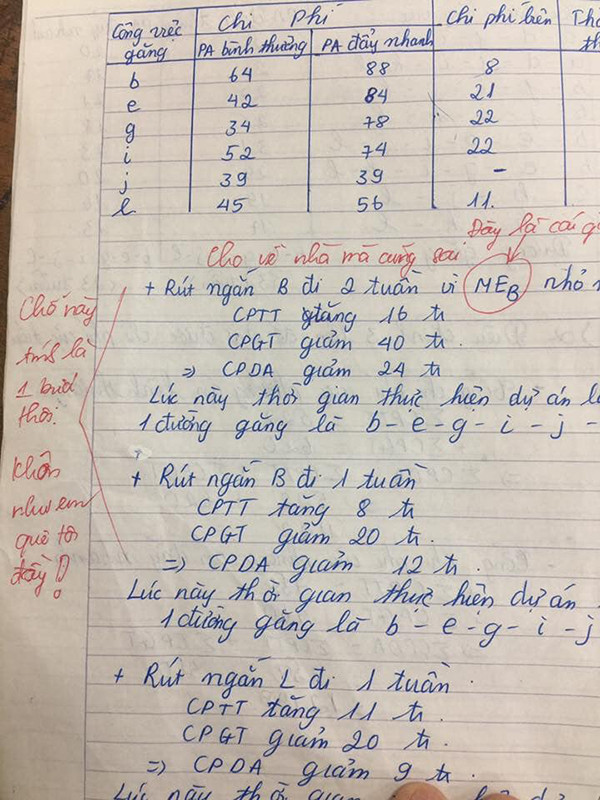 Công việc găng | Chi Phí | Chi phí biên
PA bình thường | PA đẩy nhanh
b 64 88 8
e 42 84 21
g 34 78 22
i 52 74 22
j 39 39 -
l 45 56 11.
Đây là cái
Cho về nhà mà cũng sai
+ Rút ngắn B đi 2 tuần vì MEB nhỏ
CPTT tăng 16 tr
CPGT giảm 40 tr
=> CPDA giảm 24 tr
Lúc này thời gian thực hiện dự án
1 đường găng là b - e - g - i - j -
Chỗ này
tính là
1 bước
thôi.
Khôn
như em
quê tôi
đầy!
+ Rút ngắn B đi 1 tuần
CPTT tăng 8 tr
CPGT giảm 20 tr.
=> CPDA giảm 12 tr.
Lúc này thời gian thực hiện dự án
1 đường găng là b - e - g - i - j
+ Rút ngắn L đi 1 tuần.
CPTT tăng 11 tr.
CPGT giảm 20 tr.
=> CPDA giảm 9 tr.
Lúc này thời gian thực hiện dự án